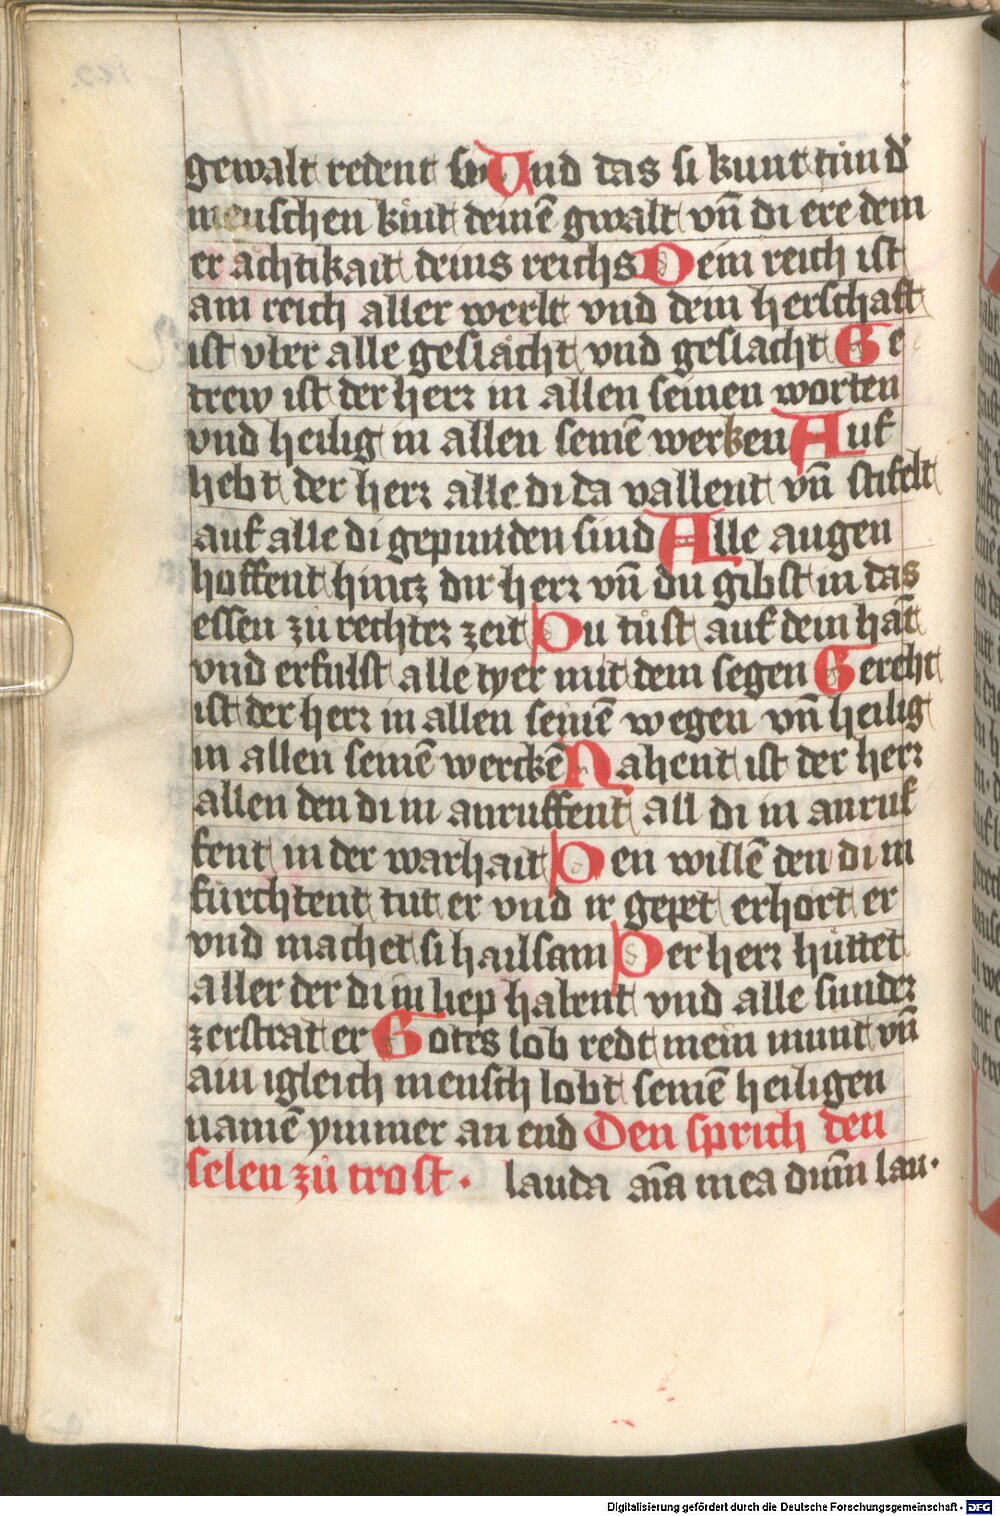 gewalt redent sy Und das si kunt tůn d'
menschen kint deinē gwalt vn̄ di ere dein
er achtikait deins reichs Dein reich ist
ain reich aller werlt vnd dein herschaft
ist vber alle geslächt vnd geslacht Ge
trew ist der herr in allen seinen worten
vnd heilig in allen seinē werken Auf
hebt der herr alle di da vallent vn̄ stifelt
auf alle di gepunden sind Alle augen
hoffent hintz dir herr vn̄ du gibst in das
essen zů rechter zeit Du tůst auf dein hāt
vnd erfulst alle tyer mit dem segen Gereht
ist der herr in allen seinē wegen vn̄ heilig
in allen seinē werckē Nahent ist der herr
allen den di in anruffent all di in anruf
fent in der warhait Den willē den di in
fürchtent tut er vnd ir gepet erhort er
vnd machet si hailsam Der herr hüttet
aller der di in liep habent vnd alle sunder
zerstrat er Gotes lob redt mein munt vn̄
ain igleich mensch lobt seinē heiligen
namē ymmer an end Den sprich den
selen zů trost · lauda aīa mea dūm lau·
Digitalisierung gefördert durch die Deutsche Forschungsgemeinschaft - DFG